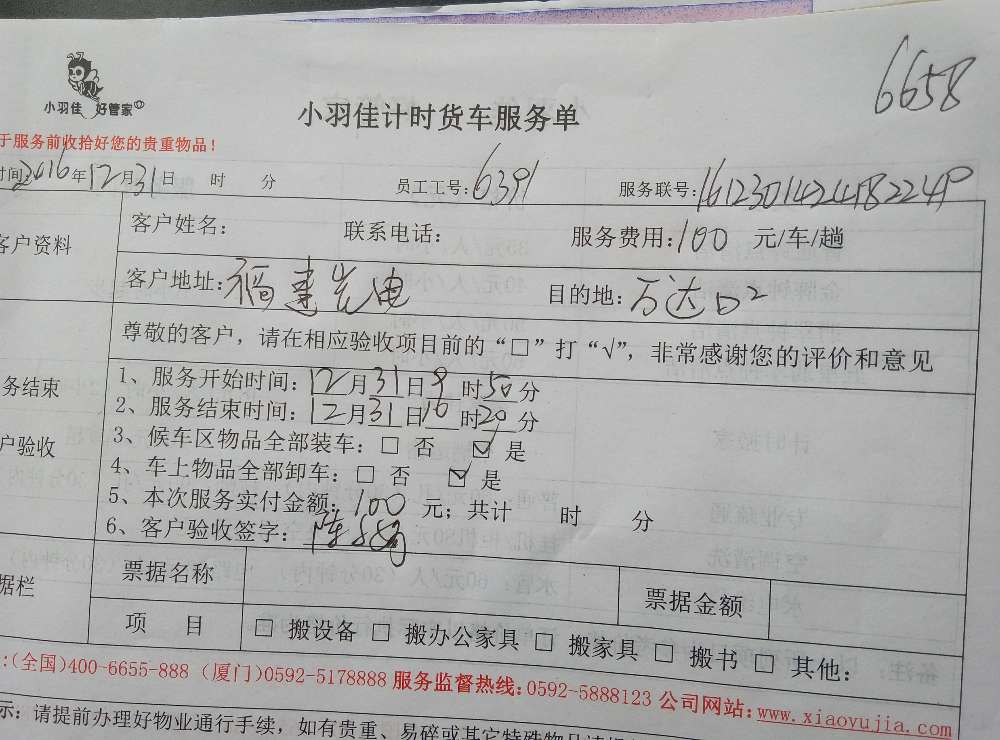 6658
小羽佳 好管家
小羽佳计时货车服务单
于服务前收拾好您的贵重物品!
时间:2016年12月31日 时 分 员工工号:6391 服务联号:161230142441B224P
客户资料
客户姓名: 联系电话: 服务费用:100 元/车/趟
客户地址:福建光电 目的地:万达D2
尊敬的客户,请在相应验收项目前的“□”打“√”,非常感谢您的评价和意见
务结束
户验收
1、服务开始时间:12月31日9时50分
2、服务结束时间:12月31日10时20分
3、候车区物品全部装车:□ 否 ☑ 是
4、车上物品全部卸车:□ 否 ☑ 是
5、本次服务实付金额:100 元;共计 时 分
6、客户验收签字:陈
据栏
票据名称 票据金额
项 目 □ 搬设备 □ 搬办公家具 □ 搬家具 □ 搬书 □ 其他:
:(全国)400-6655-888 (厦门)0592-5178888 服务监督热线:0592-5888123 公司网站:www.xiaoyujia.com
示:请提前办理好物业通行手续,如有贵重、易碎或其它特殊物品请